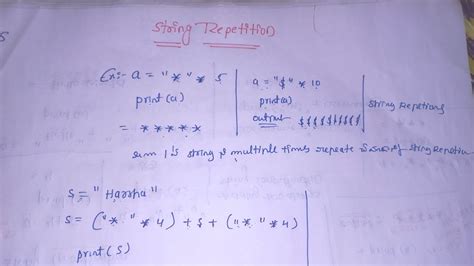 String Repetition
Ex:- a = "*" * 5
print(a)
= * * * * *
a = "$" * 10
print(a)
output $$$$$$$$$$
String Repetitions
1 string multiple times repeate string
s = "Harsha"
s = ("*" * 4) + s + ("*" * 4)
print(s)